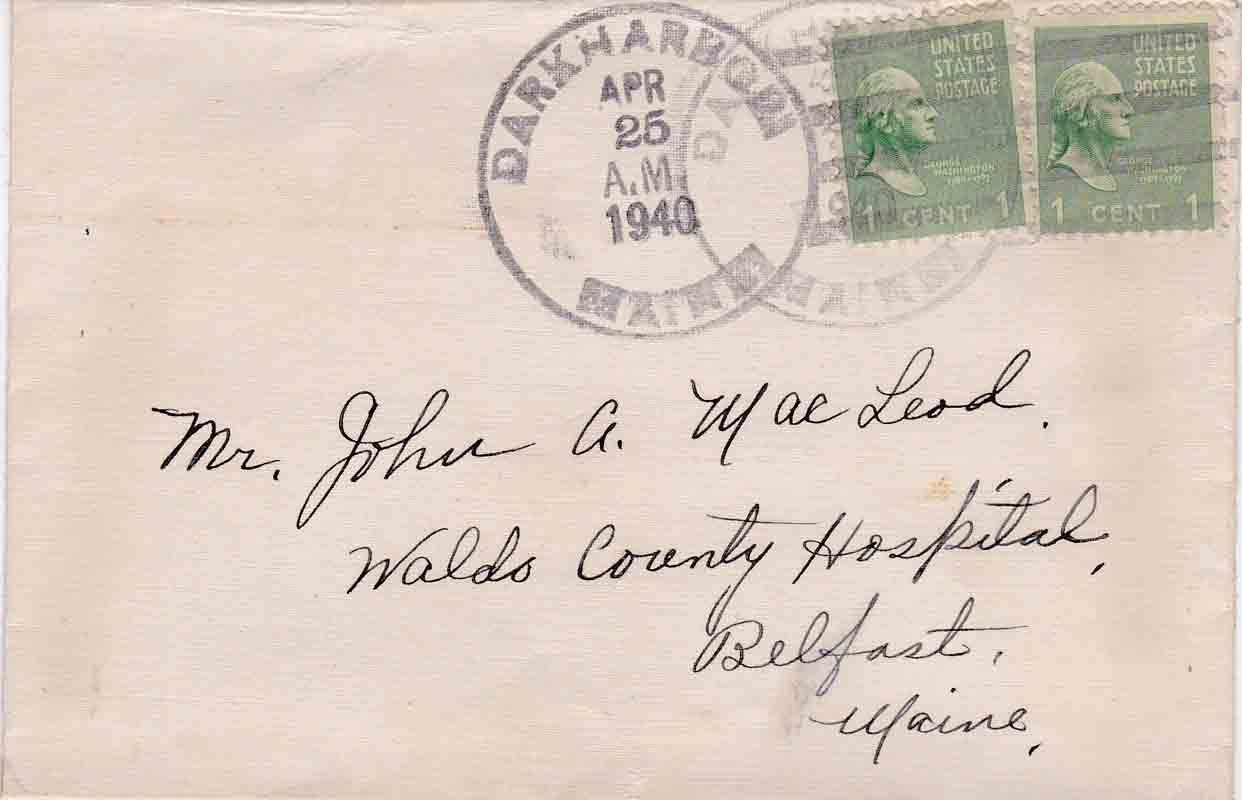 DARK HARBOR
APR
25
A.M.
1940
MAINE
1940
MAINE
UNITED
STATES
POSTAGE
GEORGE
WASHINGTON
1789-1797
1 CENT 1
UNITED
STATES
POSTAGE
GEORGE
WASHINGTON
1789-1797
1 CENT 1
Mr. John A. MacLeod.
Waldo County Hospital,
Belfast,
Maine,